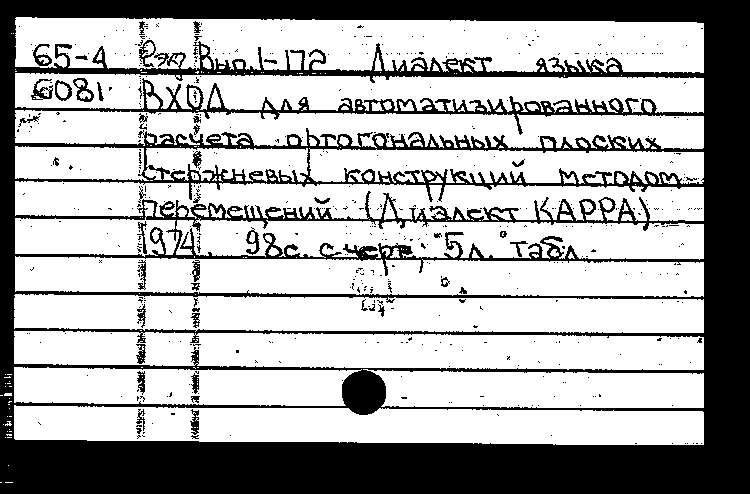 65-4 Вып. 1-172 Диалект языка
6081 ВХОД для автоматизированного
расчета ортогональных плоских
стержневых конструкций методом
перемещений (Диалект КАРРА)
1974. 98с. с черт; 5л. табл.